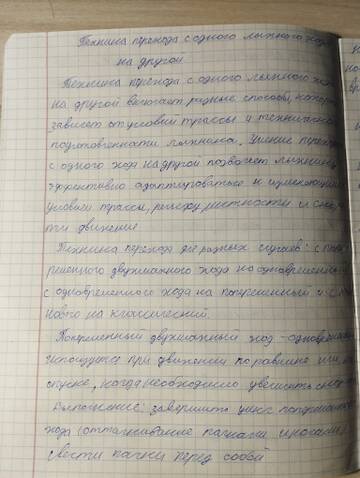 Техника перехода с одного лыжного хода
на другой
Техника перехода с одного лыжного хо
на другой включает разные способы, котор
зависят от условий трассы и технической
подготовленности лыжника. Умение перех
с одного хода на другой позволяет лыжнику
эффективно адаптироваться к изменяющим
условиям трассы, рельефу местности и ско
ти движения
Техника перехода для разных случаев: с попе
ременного двухшажного хода на одновременный
с одновременного хода на попеременный и с
нового на классический.
Попеременный двухшажный ход - одновремен
используется при движении по равнине или
спуске, когда необходимо увеличить ско
Выполнение: завершить цикл попеременн
хода (отталкивание палками и ногами)
вывести палки перед собой